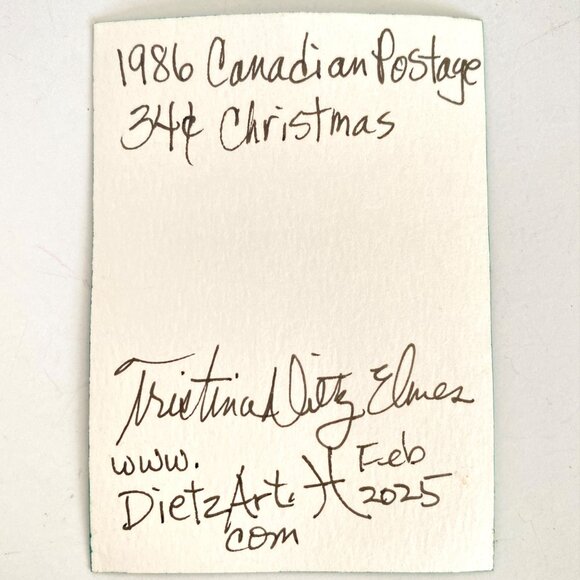 1986 Canadian Postage
34¢ Christmas
Tristina Dietz Elmes
www.
DietzArt.
com
♓ Feb
2025